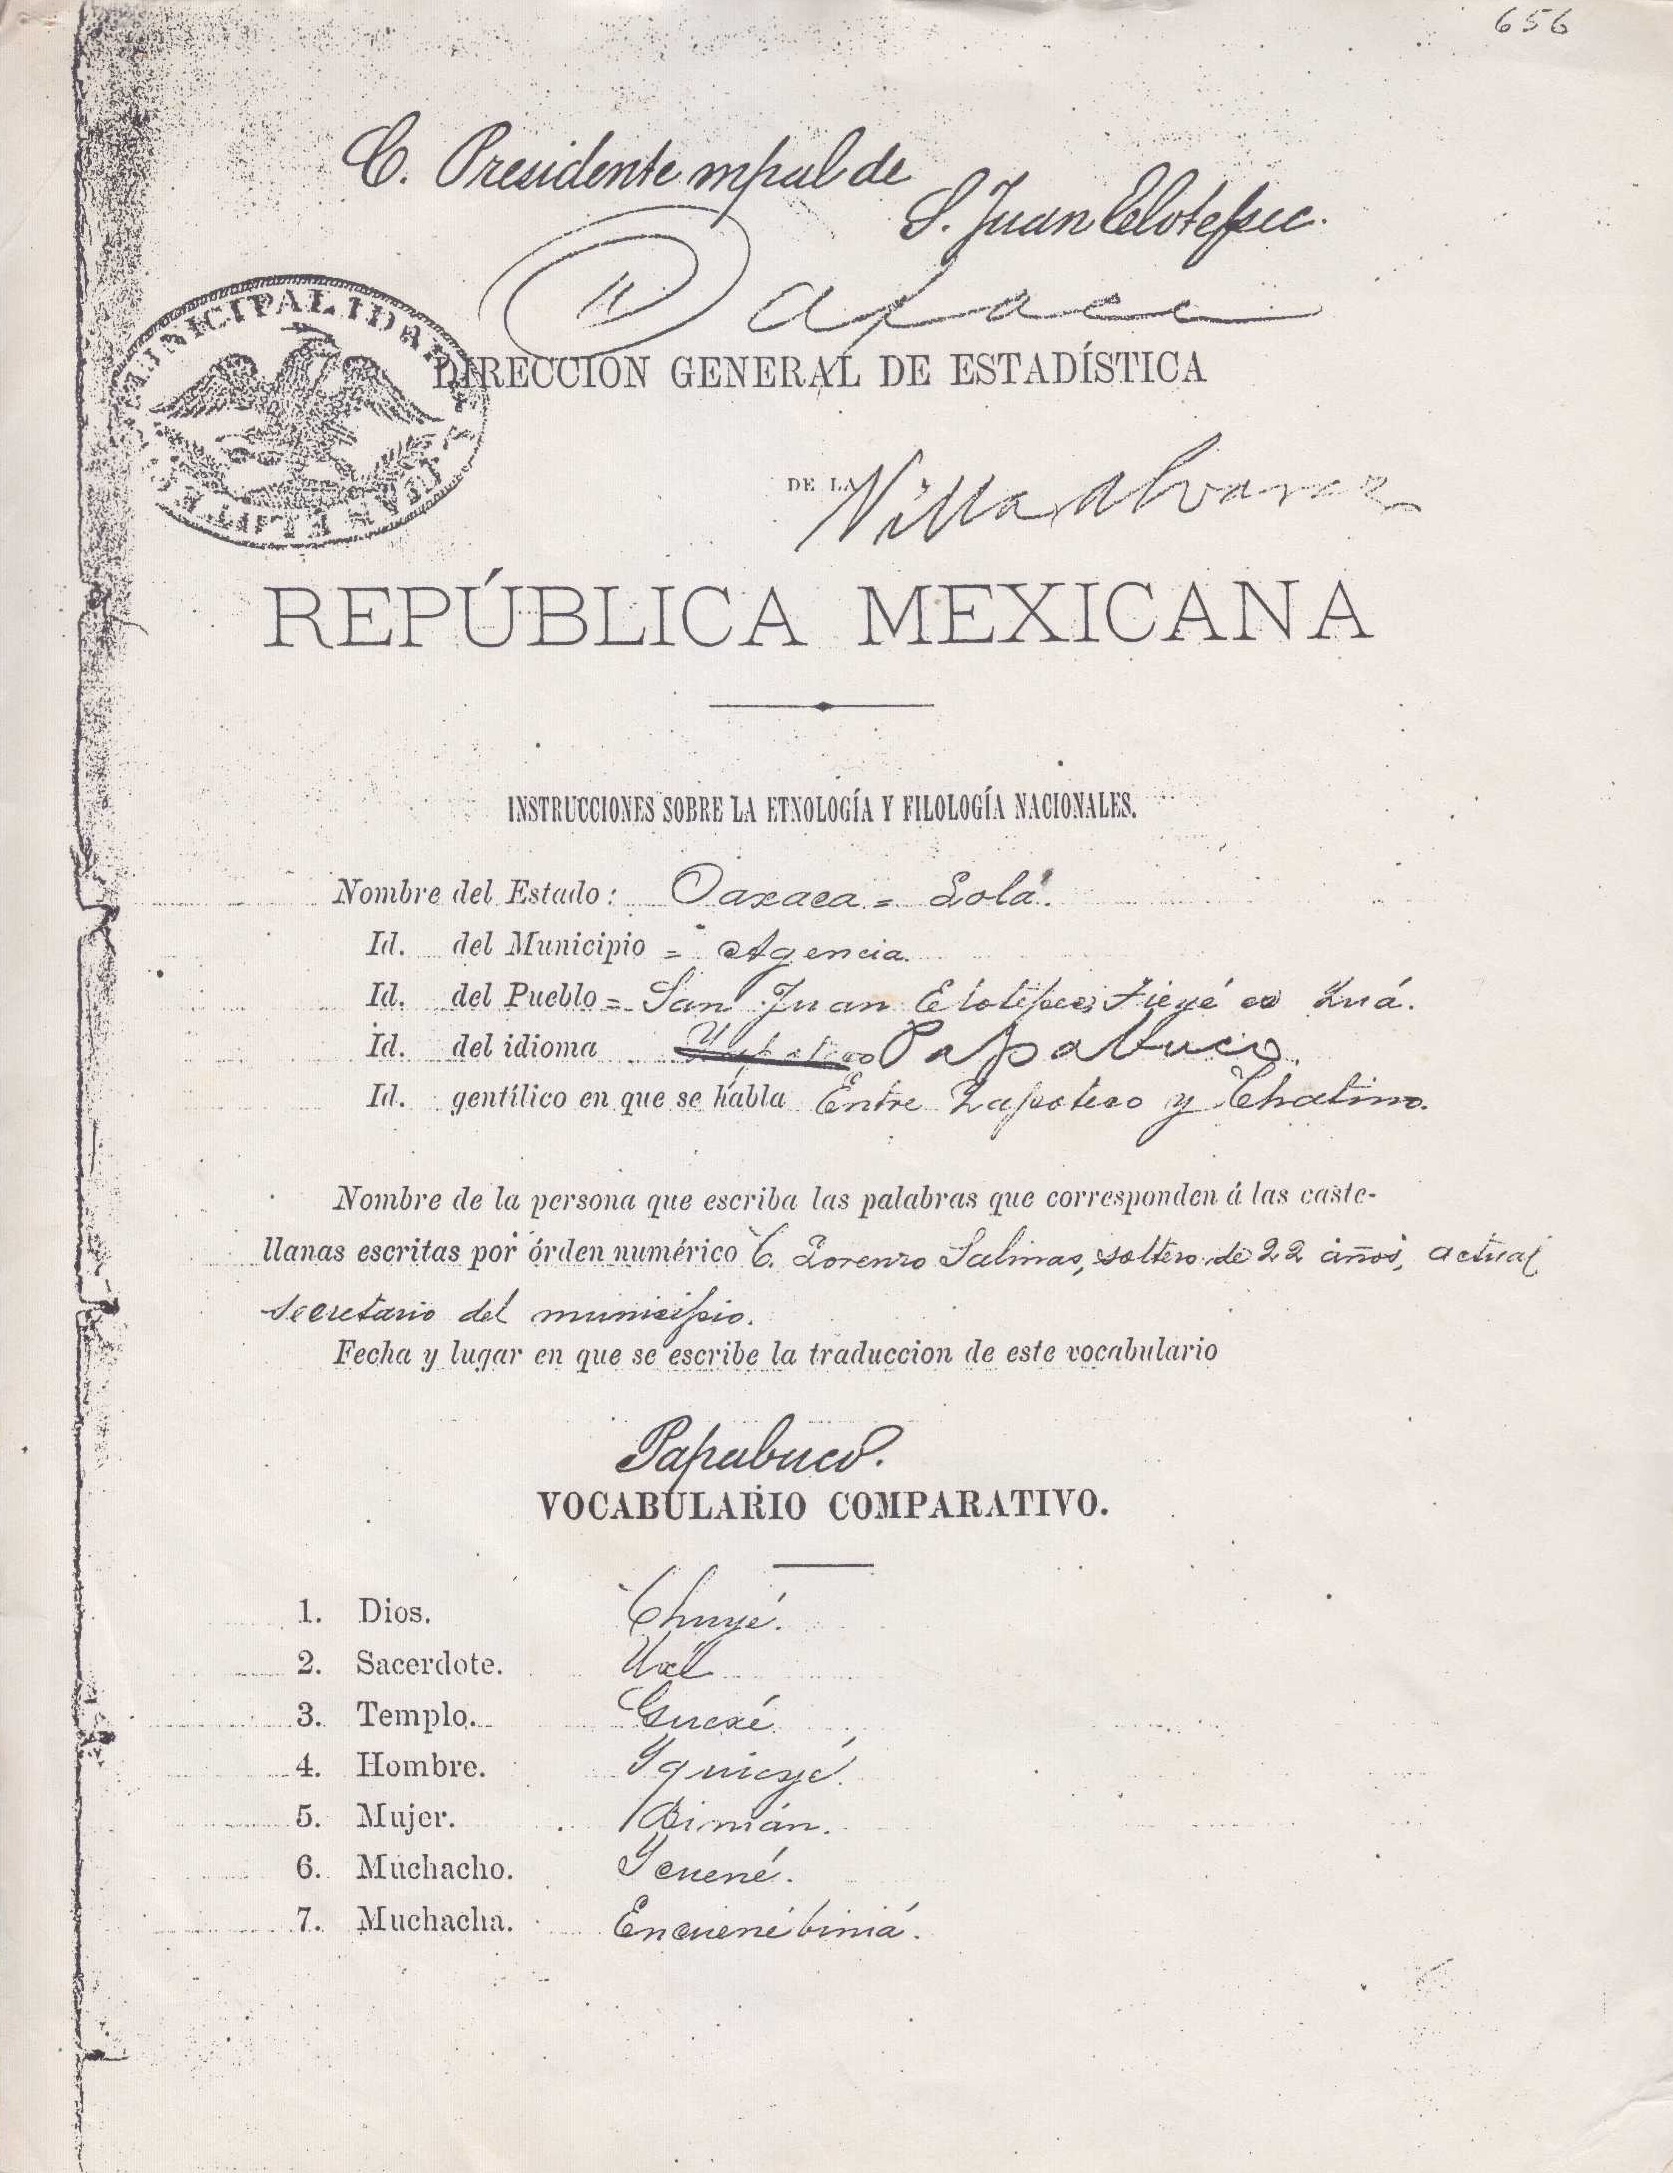 656
C. Presidente mpal de
S. Juan Elotepec.
Oaxaca
MUNICIPALIDAD
JUAN ELOTEPEC
DIRECCION GENERAL DE ESTADÍSTICA
DE LA
Villa Alvarez
REPÚBLICA MEXICANA
INSTRUCCIONES SOBRE LA ETNOLOGÍA Y FILOLOGÍA NACIONALES.
Nombre del Estado: Oaxaca = Sola.
Id. del Municipio = Agencia.
Id. del Pueblo = San Juan Elotepec,
Id. del idioma Zapoteco Papabuco.
Id. gentílico en que se habla Entre Zapoteco y Chatino.
Nombre de la persona que escriba las palabras que corresponden á las caste-
llanas escritas por órden numérico C. Lorenzo Salinas, soltero de 22 años, actual
secretario del municipio.
Fecha y lugar en que se escribe la traduccion de este vocabulario
Papabuco.
VOCABULARIO COMPARATIVO.
1. Dios. Chuyé.
2. Sacerdote.
3. Templo.
4. Hombre.
5. Mujer.
6. Muchacho. Ycuené.
7. Muchacha. Encuené biniá.